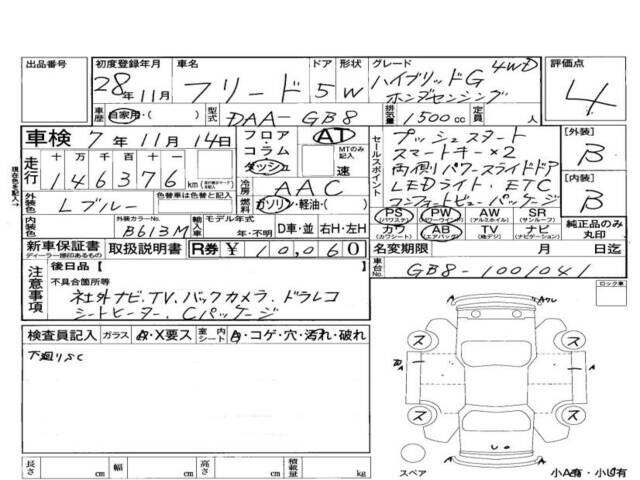 出品番号 初度登録年月 車名 ドア 形状 グレード 評価点
28年11月 フリード 5 W ハイブリッドG 4WD
ホンダセンシング 4
車歴 自家用・( ) 型式 DAA-GB8 排気量 1500cc 定員 人
車検 7年11月14日 フロア・コラム ダッシュ AT MTのみ記入 速
走行 十万千百十一
146376 km
冷房 AAC
燃料 ガソリン・軽油・( )
セールスポイント
プッシュスタート
スマートキー×2
両側パワースライドドア
LEDライト、ETC
コンフォートビューパッケージ
[外装] B
[内装] B
外装色 Lブルー 色替車は色替と記入
内装色 外装カラーNo. B613M 輸入車 モデル年式 年・不明 D車・並 右H・左H
PS (パワステ) PW (パワーウインド) AW (アルミホイル) SR (サンルーフ)
カワ (カワシート) AB (エアバック) TV (地デジ) ナビ (ナビゲーション)
純正品のみ丸印
新車保証書 ディーラー捺印あるもの 取扱説明書 R券 ¥10,060 名変期限 月 日迄
車台No. GB8-1001041
注意事項
後日品【 】
不具合箇所等
社外ナビ、TV、バックカメラ、ドラレコ
シートヒーター、Cパッケージ
ロック車
検査員記入 ガラス・X要ス 室内シート・コゲ・穴・汚れ・破れ
下廻りSC
ス ス
ス ス
長さ cm 幅 cm 高さ cm 積載量 kg
スペア 小A有・小U有